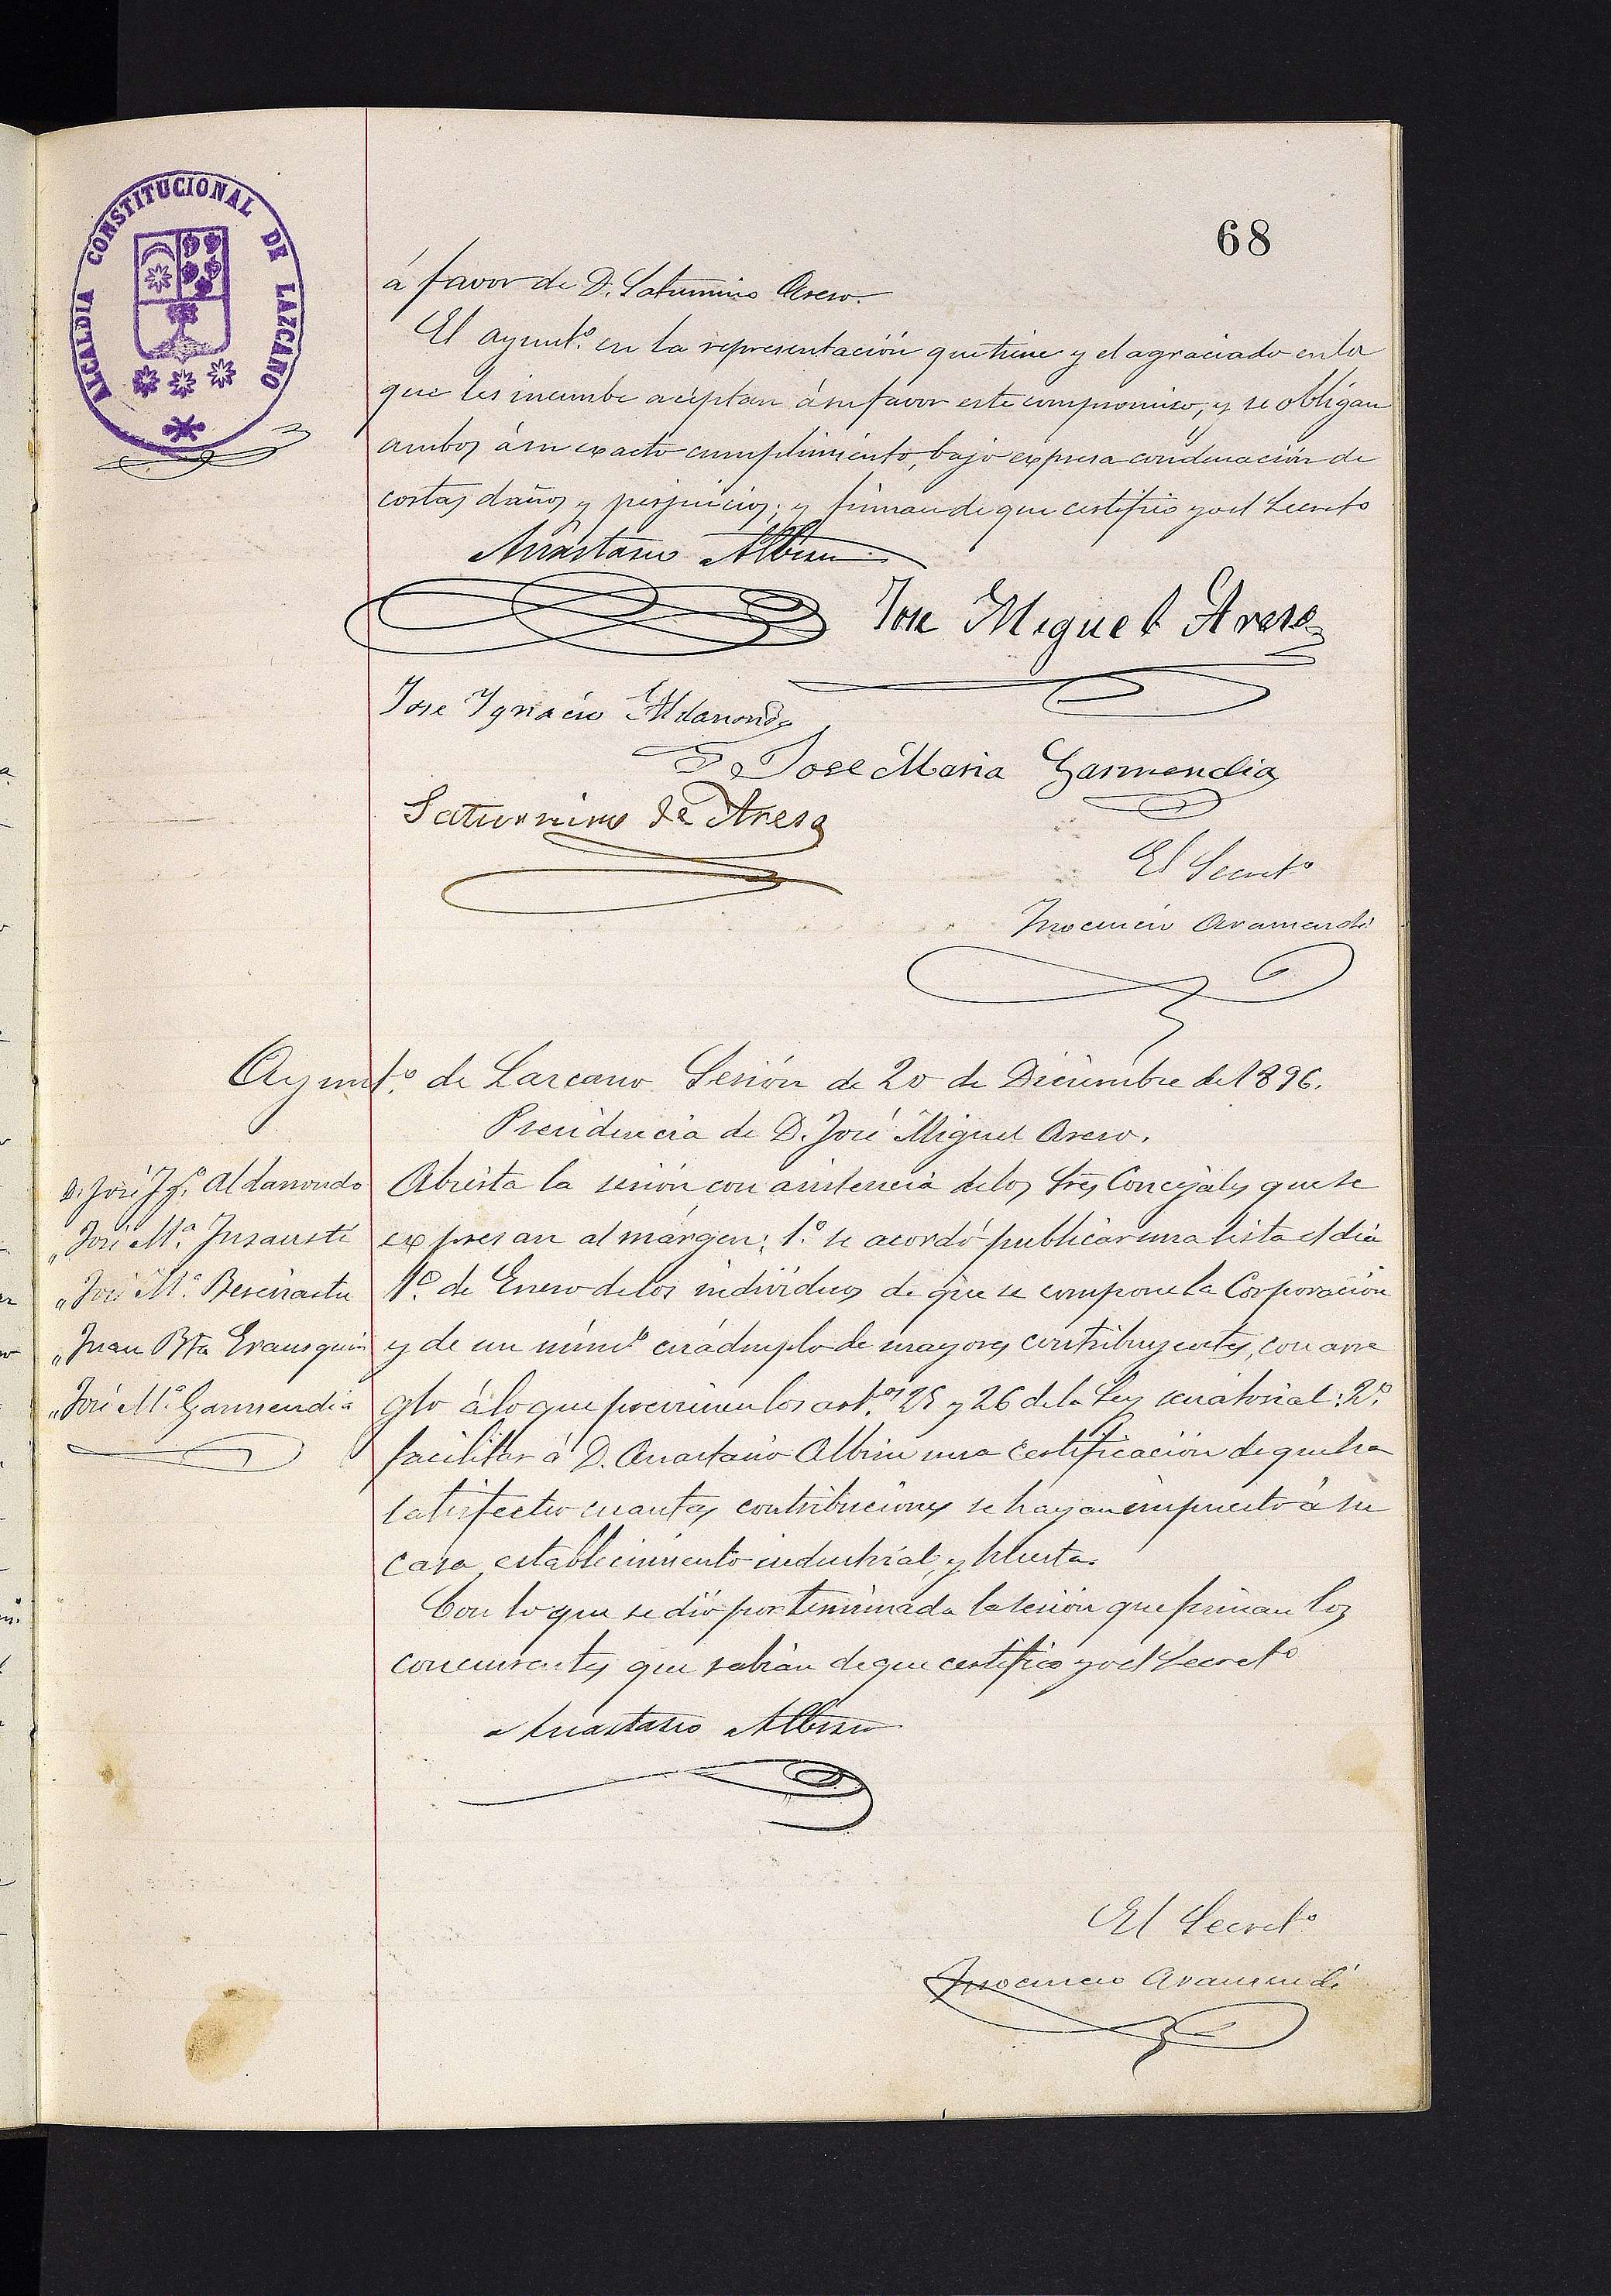 68
ALCALDIA CONSTITUCIONAL DE LAZCANO
á favor de D. Saturnino Aseso.
El ayunt.º en la representación que tiene y el agraciado en la
que les incumbe aceptan á su favor este compromiso, y se obligan
ambos á su exacto cumplimiento, bajo expresa condenación de
costas daños y perjuicios; y firman de que certifico yo el Secretº
Anastasio Albisu
Jose Miguel Areso
Jose Ygnacio Aldanondo
Jose Maria Garmendia
Saturnino de Areso
El Secretº
Inocencio Aramendi
Ayunt.º de Lazcano Sesión de 20 de Diciembre de 1896.
Presidencia de D. José Miguel Areso.
D. José Ygº. Aldanondo
„ José M.ª Insausti
„ José M.ª Beseinastu
„ Juan Bta Erausquin
„ José M.ª Garmendia
Abierta la sesión con asistencia de los Sres Concejales que se
expresan al márgen: 1.º se acordó publicar una lista el dia
1.º de Enero de los individuos de que se compone la Corporación
y de un númº cuádruplo de mayores contribuyentes, con arre
glo á lo que previenen los art.os 25 y 26 de la Ley senatorial: 2.º
facilitar á D. Anastasio Albisu una certificación de que ha
satisfecho cuantas contribuciones se hayan impuesto á su
casa, establecimiento industrial, y huerta.
Con lo que se dió por terminada la sesión que firman los
concurrentes que sabían de que certifico yo el Secretº
Anastasio Albisu
El Secretº
Inocencio Aramendi